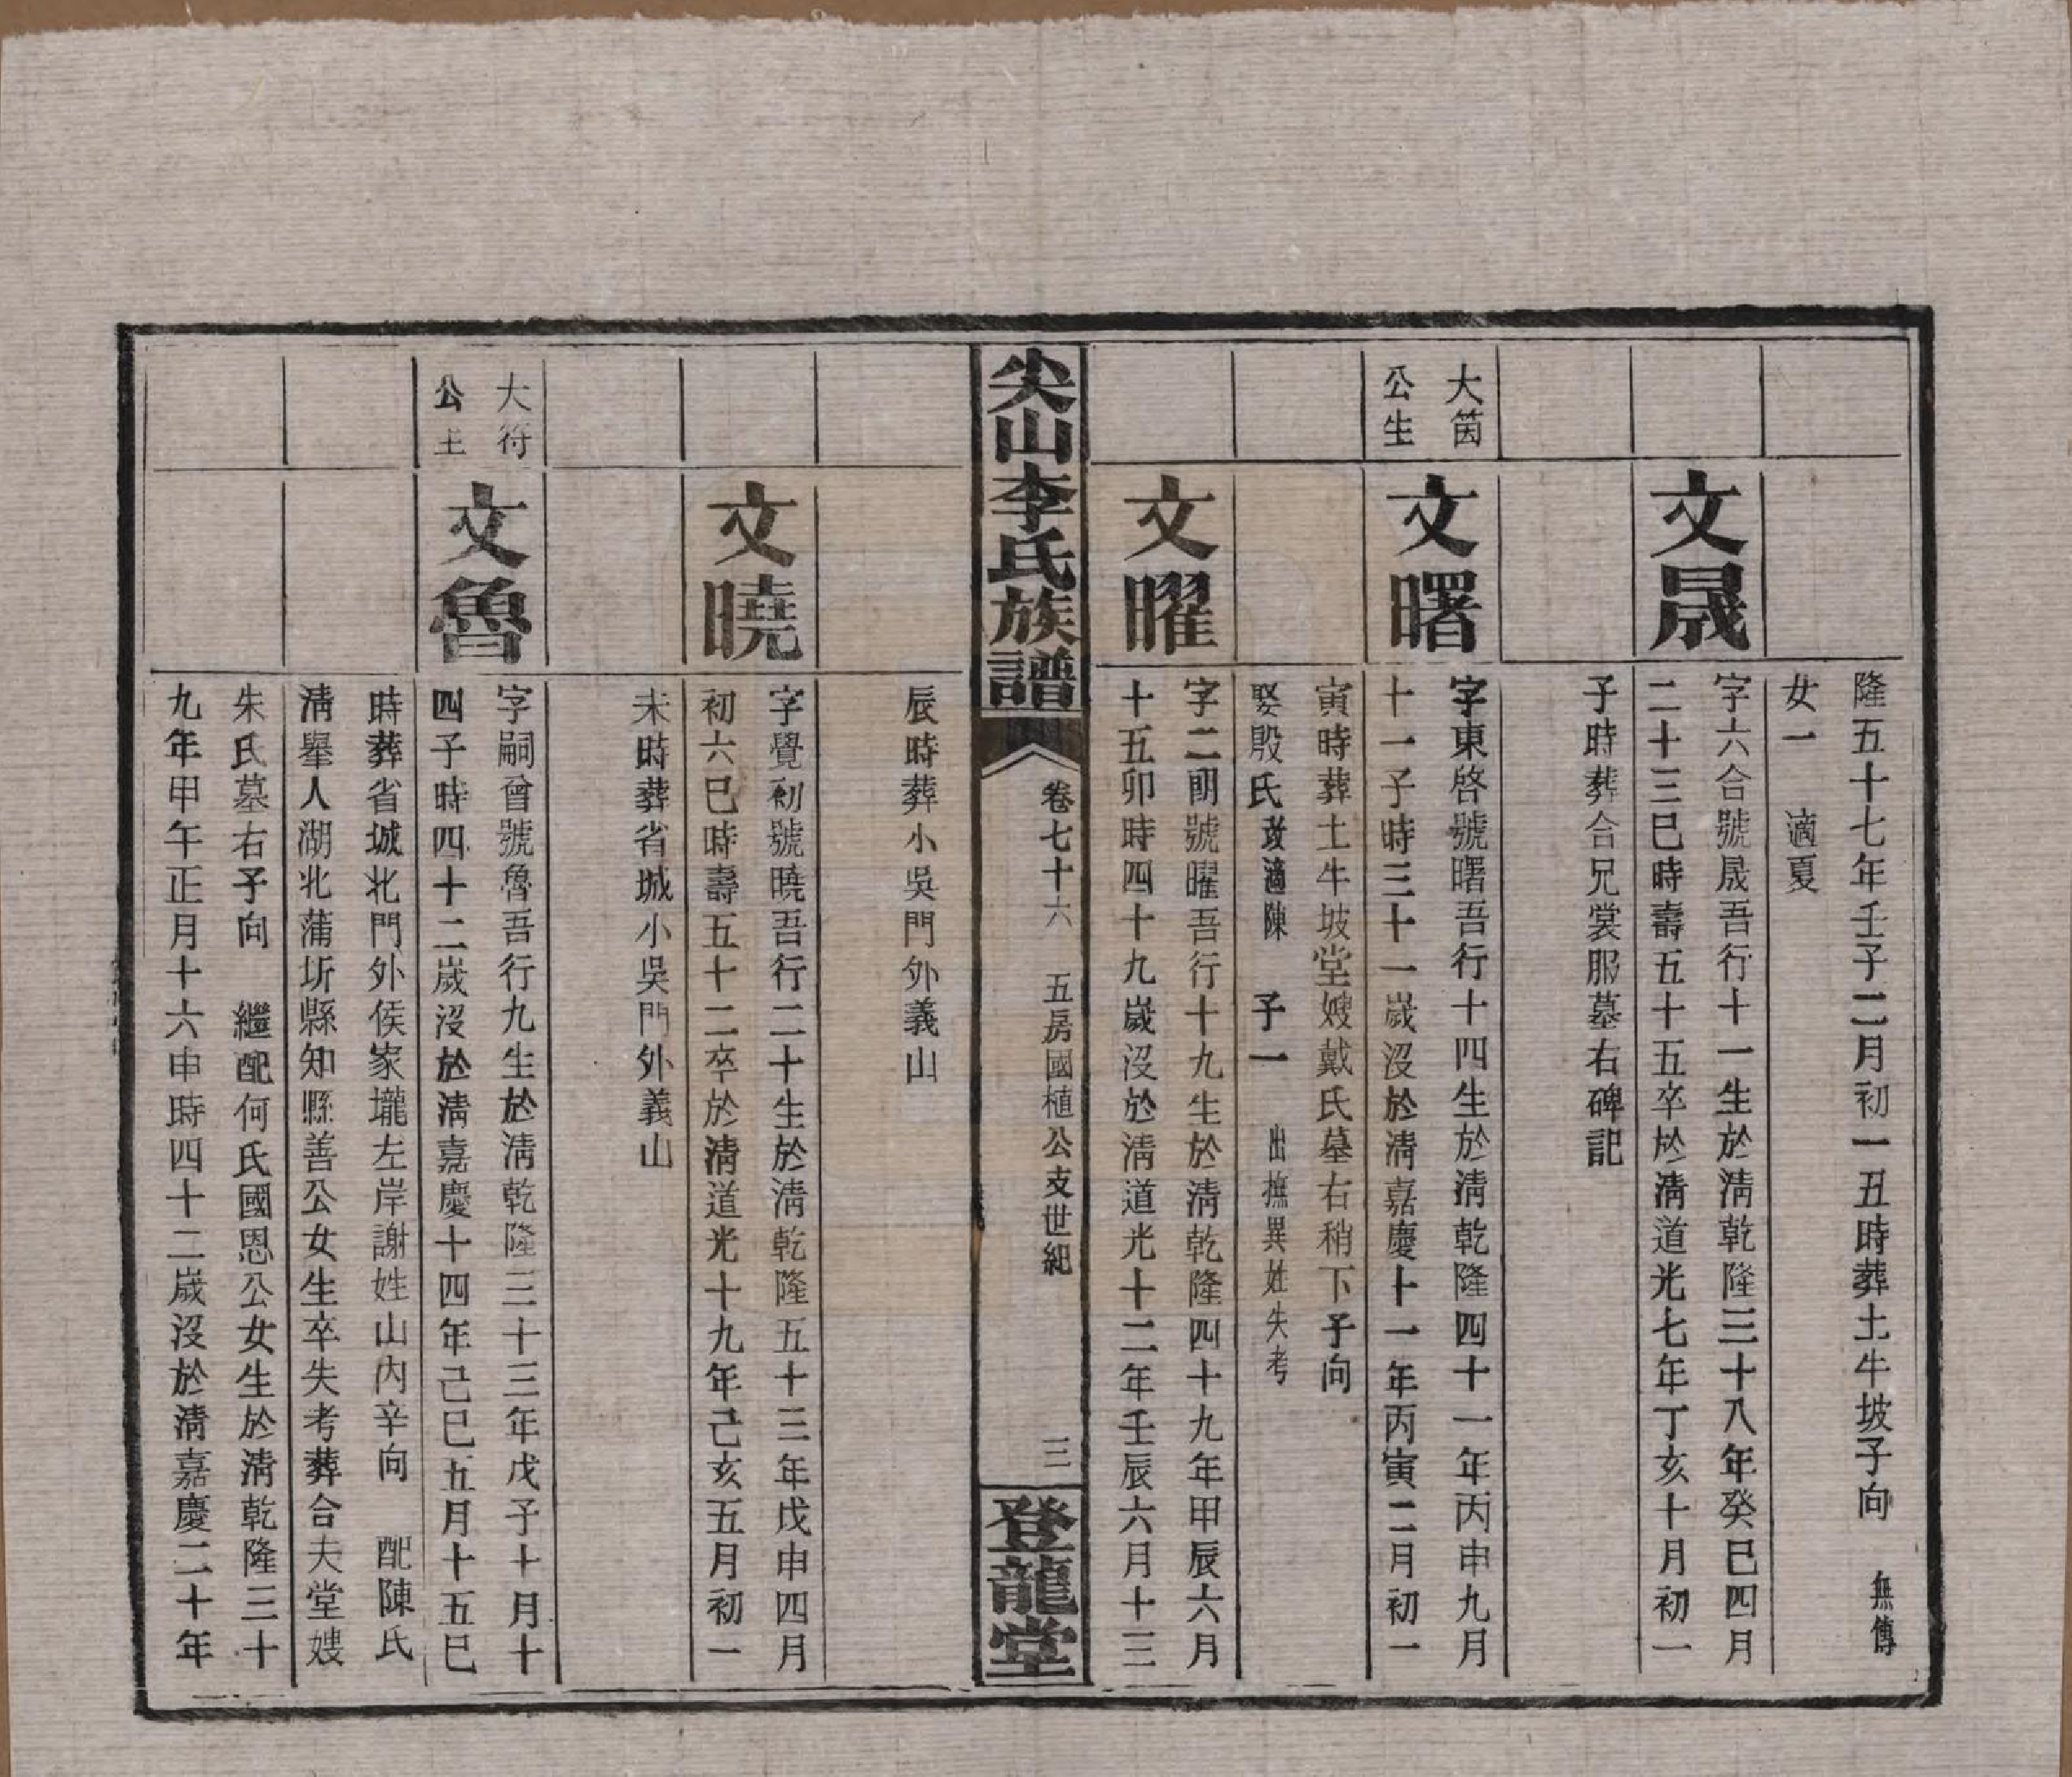 隆五十七年壬子二月初一丑時葬土牛坡子向　無傳
女一　適夏
文晟
字六合號晟吾行十一生於淸乾隆三十八年癸巳四月
二十三巳時壽五十五卒於淸道光七年丁亥十月初一
子時葬合兄裳服墓右碑記
大茵
公生
文曙
字東啓號曙吾行十四生於淸乾隆四十一年丙申九月
十一子時三十一歲沒於淸嘉慶十一年丙寅二月初一
寅時葬土牛坡堂嫂戴氏墓右稍下子向
娶殷氏改適陳　子一　出撫異姓失考
文曜
字二朙號曜吾行十九生於淸乾隆四十九年甲辰六月
十五卯時四十九歲沒於淸道光十二年壬辰六月十三
尖山李氏族譜
卷七十六　五房國植公支世紀
三
登龍堂
辰時葬小吳門外義山
文曉
字覺初號曉吾行二十生於淸乾隆五十三年戊申四月
初六巳時壽五十二卒於淸道光十九年己亥五月初一
未時葬省城小吳門外義山
大符
公生
文魯
字嗣曾號魯吾行九生於淸乾隆三十三年戊子十月十
四子時四十二歲沒於淸嘉慶十四年己巳五月十五巳
時葬省城北門外侯家壠左岸謝姓山內辛向　配陳氏
淸舉人湖北蒲圻縣知縣善公女生卒失考葬合夫堂嫂
朱氏墓右子向　繼配何氏國恩公女生於淸乾隆三十
九年甲午正月十六申時四十二歲沒於淸嘉慶二十年